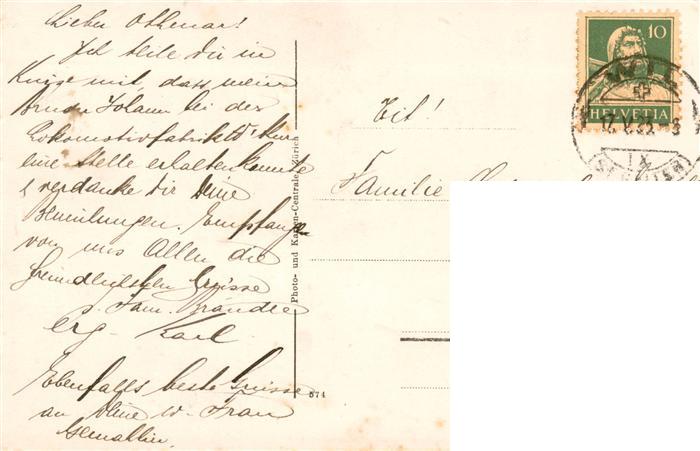 Lieber Othmar!
Ich teile dir in
Kürze mit, dass mein
Bruder Johann bei der
Lokomotivfabrik W'thur
eine Stelle erhalten konnte
& verdanke dir deine
Bemühungen. Empfange
von uns Allen die
freundlichsten Grüsse
s. Fam. Brändle
erg. Karl
Ebenfalls beste Grüsse
an deine w. Frau
Gemahlin.
Photo- und Karten-Centrale Zürich
571
Tit!
Familie
10
HELVETIA
WIL